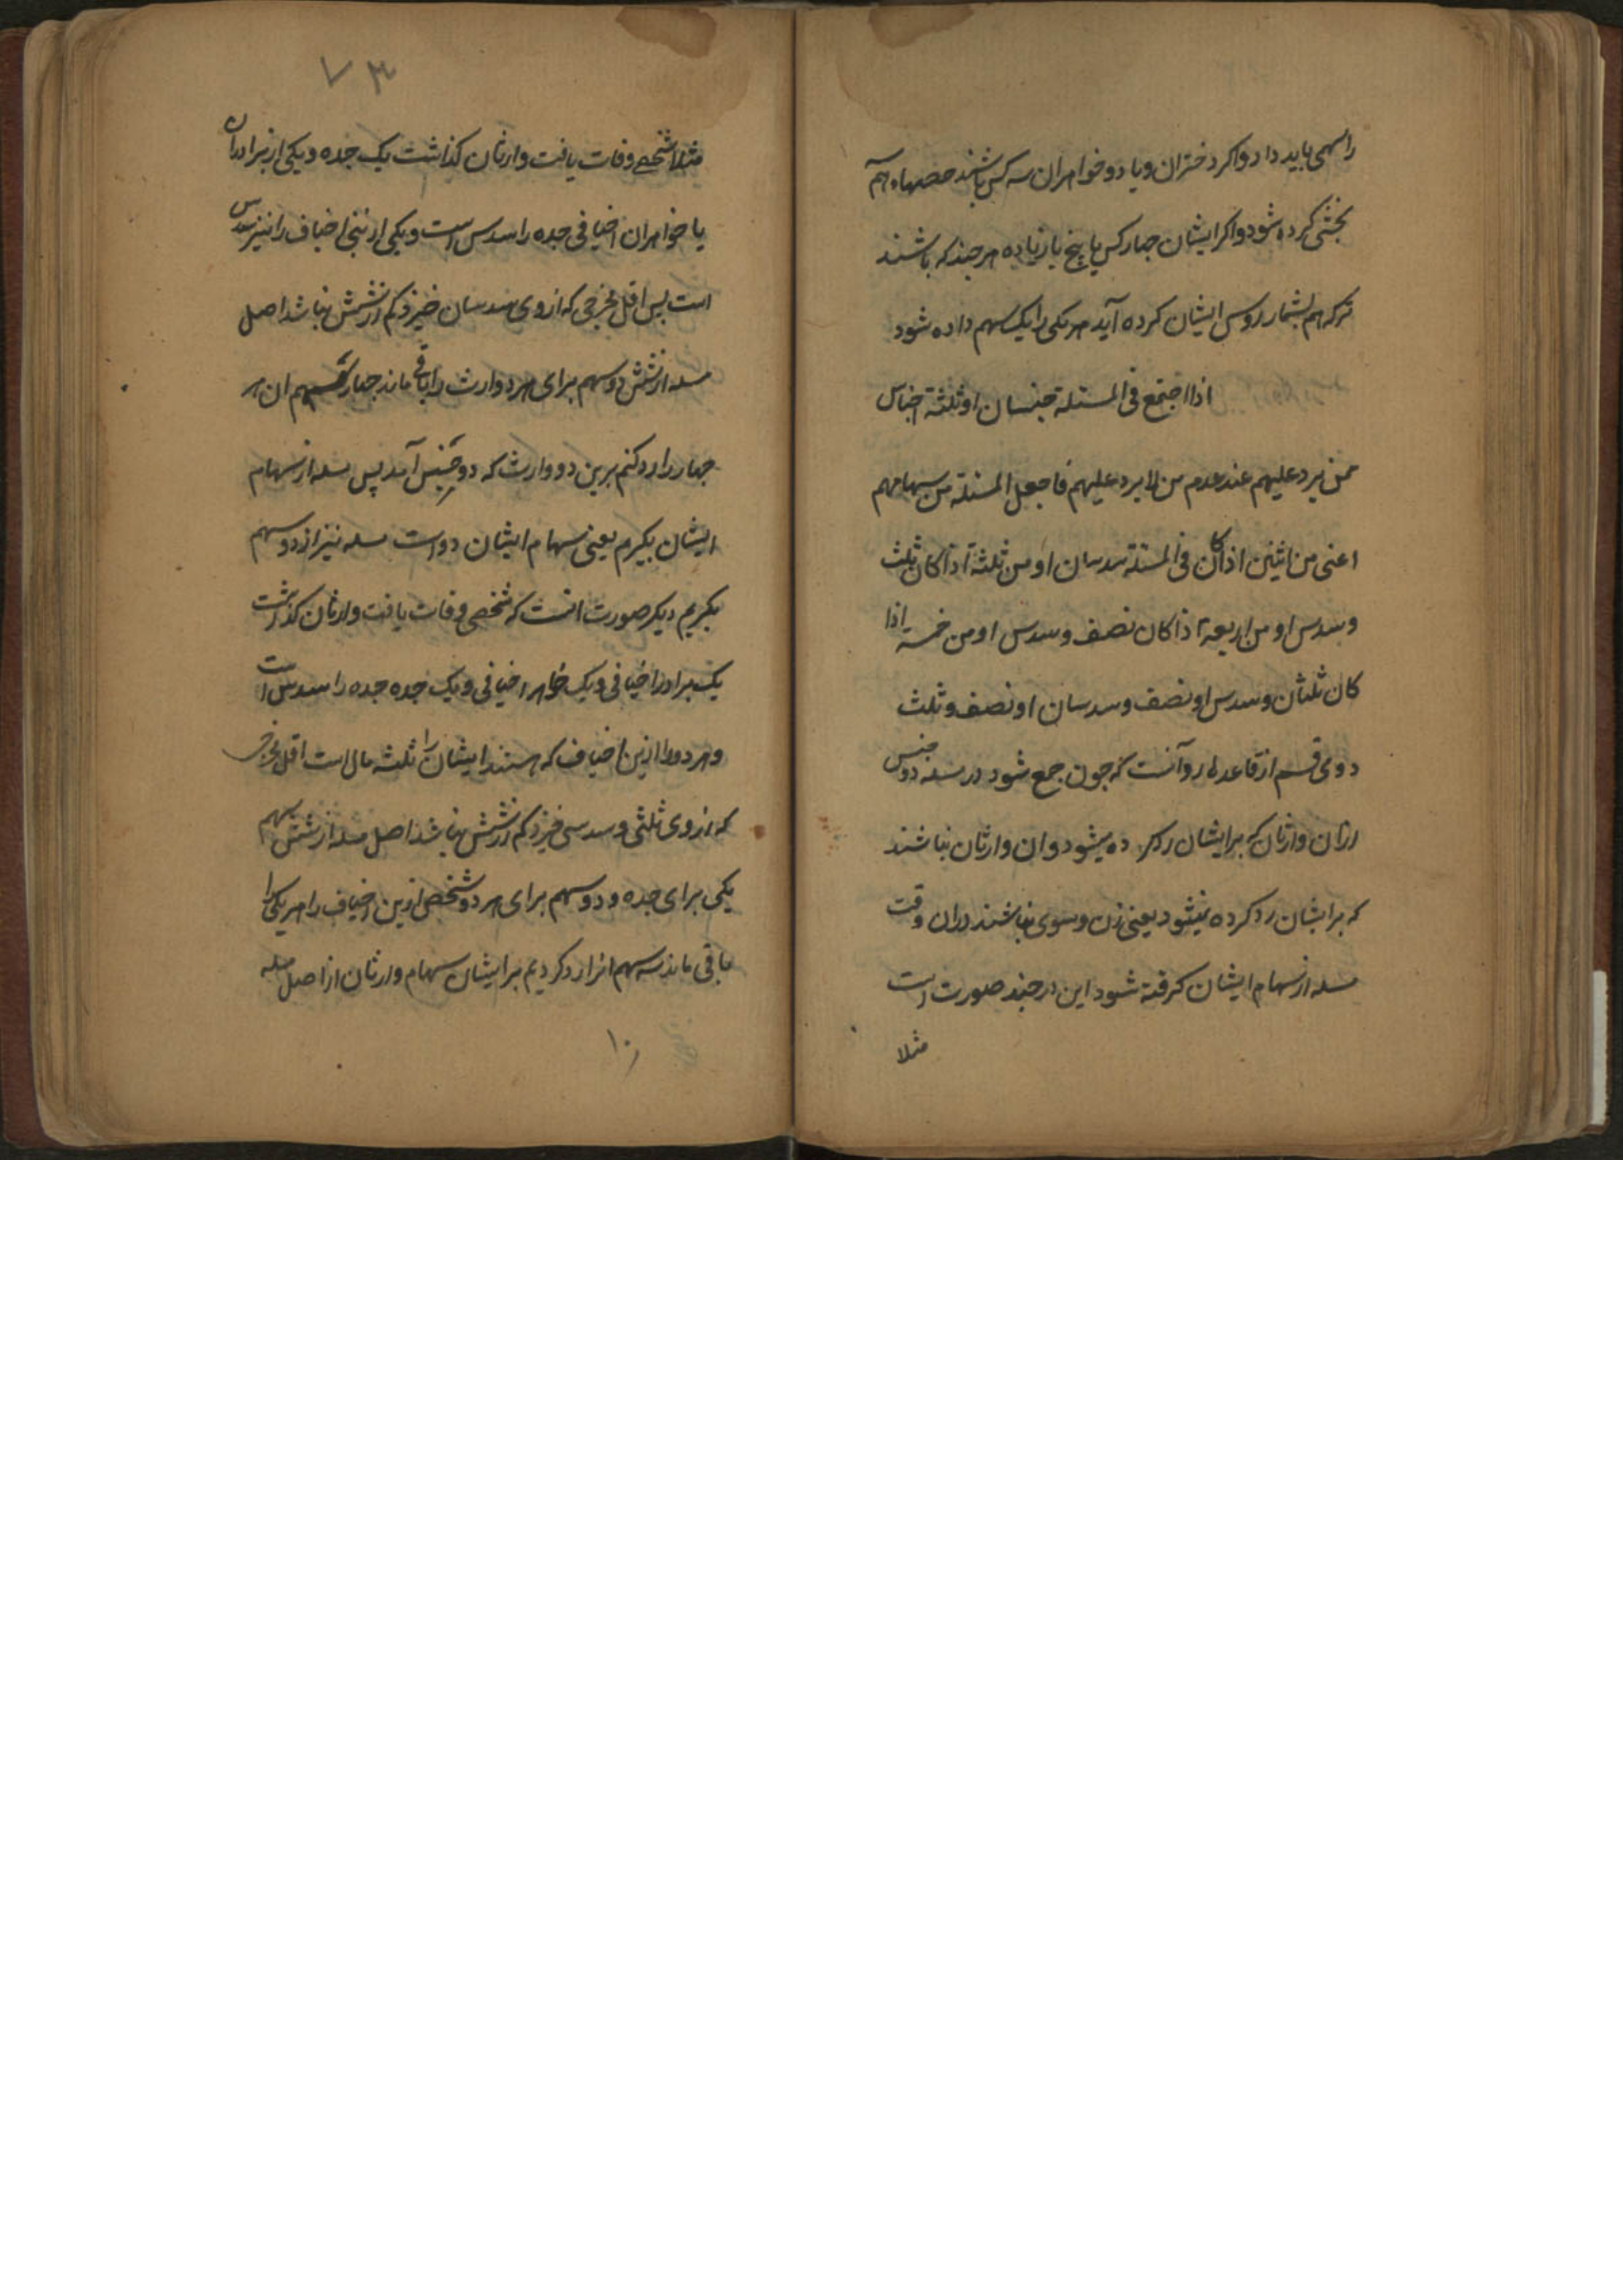 را سهمی باید داد و اکر دختران و یا دو خواهران سه کس باشند حصهاء هم
بخشی کرده شود و اکر ایشان چهار کس یا پنج یا زیاده هر چند که باشند
ترکه هم بشمار روس ایشان کرده آید هر یکی را یک سهم داده شود
اذا اجتمع فی المسئلة جنسان او ثلثة اجناس
ممن یرد علیهم عند عدم من لا یرد علیهم فاجعل المسئلة من سهامهم
اعنی من اثنین اذا کان فی المسئلة سدسان او من ثلثة اذا کان ثلث
وسدس او من اربعة اذا کان نصف وسدس او من خمسة اذا
کان ثلثان وسدس او نصف وسدسان او نصف وثلث
دوی قسم از قاعدهاء رد آنست که چون جمع شود در مسله دو جنس
ازان وارثان که بر ایشان رد کرده میشود و ان وارثان نباشند
که بر ایشان رد کرده نمیشود یعنی زن و سوی نباشند دران وقت
مسله از سهام ایشان کرفته شود این در چند صورت است
مثلا
۷۳
مثلا شخصے وفات یافت وارثان کذاشت یک جده و یکی از برادران
یا خواهران اخیافی جده را سدس است و یکی از بنی اخیاف را نیز سدس
است پس اقل مخرجی که از وی سدسان خیزد کم از شش نباشد اصل
مسله از شش دو سهم برای هر دو وارث را باقی ماند چهار سهم ان هر
چهار را رد کنم برین دو وارث که دو جنس آمد پس مسله از سهام
ایشان بکیرم یعنی سهام ایشان دو است مسله نیز از دو سهم
بکیریم دیکر صورت انست که شخصی وفات یافت وارثان کذاشت
یک برادر اخیافی و یک خواهر اخیافی و یک جده جده را سدس است
و هر دو را ازین اخیاف که هستند ایشان را ثلث مال است اقل مخرجی
که از وی ثلثی و سدسی خیزد کم از شش نباشد اصل مسله از شش سهم
یکی برای جده و دو سهم برای هر دو شخص ازین اخیاف را هر یکی را
باقی ماند سه سهم انرا رد کردیم بر ایشان سهام وارثان از اصل مسله
۱۰